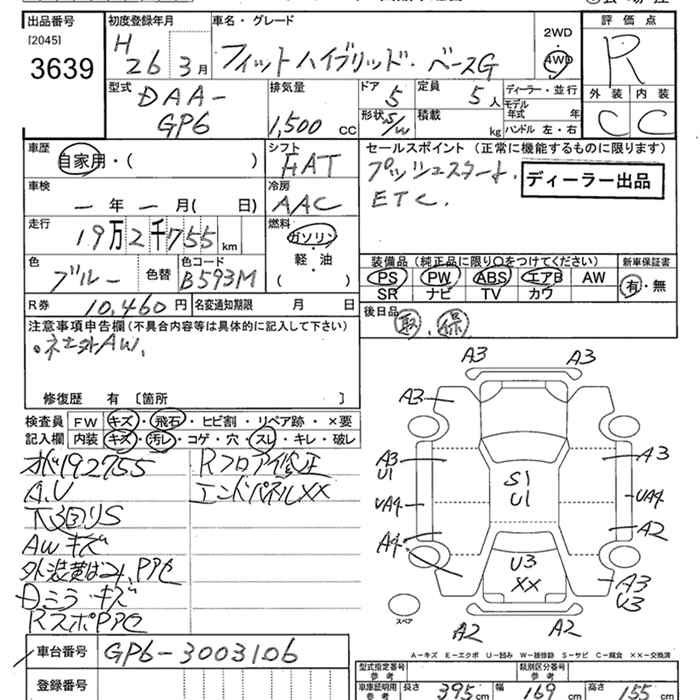 出品番号 初度登録年月 車名・グレード 評価点
[2045]
3639
H 26 3月
フィットハイブリッド・ベースG
2WD
4WD
R
型式 排気量 ドア 定員 ディーラー・並行 外装 内装
DAA-
GP6
1,500 CC
5 5人
形状 S/W 積載 kg
モデル年式 年
ハンドル 左・右
C C
車歴 シフト セールスポイント (正常に機能するものに限ります)
自家用・( )
FAT
プッシュスタート、
ETC.
ディーラー出品
車検 冷房
ー年ー月( 日)
AAC
走行 燃料
19万2千755km
ガソリン
軽・油
( )
装備品 (純正品に限り○をつけてください) 新車保証書
色 色替 色コード
ブルー B593M
PS PW ABS エアB AW
SR ナビ TV カワ
有・無
R券 10,460円 名変通知期限 月 日
後日品 取.保
注意事項申告欄(不具合内容等は具体的に記入して下さい)
。社外AW.
修復歴 有〔箇所 〕
検査員 FW キズ・飛石・ヒビ割・リペア跡・×要
記入欄 内装 キズ・汚レ・コゲ・穴・スレ・キレ・破レ
192755 Rフロア修正
A.U エンドパネルXX
下回りS
AWキズ
PPセ
Dミラーキズ
RスポPPセ
A3 A3
A3
A3 U1 A3
S1 U1
UA4 UA4
A4 A2
U3 XX
A3 U3
A2 A2
スペア
A-キズ E-エクボ U-凹み W-補修跡 S-サビ C-腐食 XX-交換済
車台番号 GP6-3003106
登録番号
型式指定番号 参考 類別区分番号 参考
車庫証明用 参考 長さ 395cm 幅 169cm 高さ 155cm